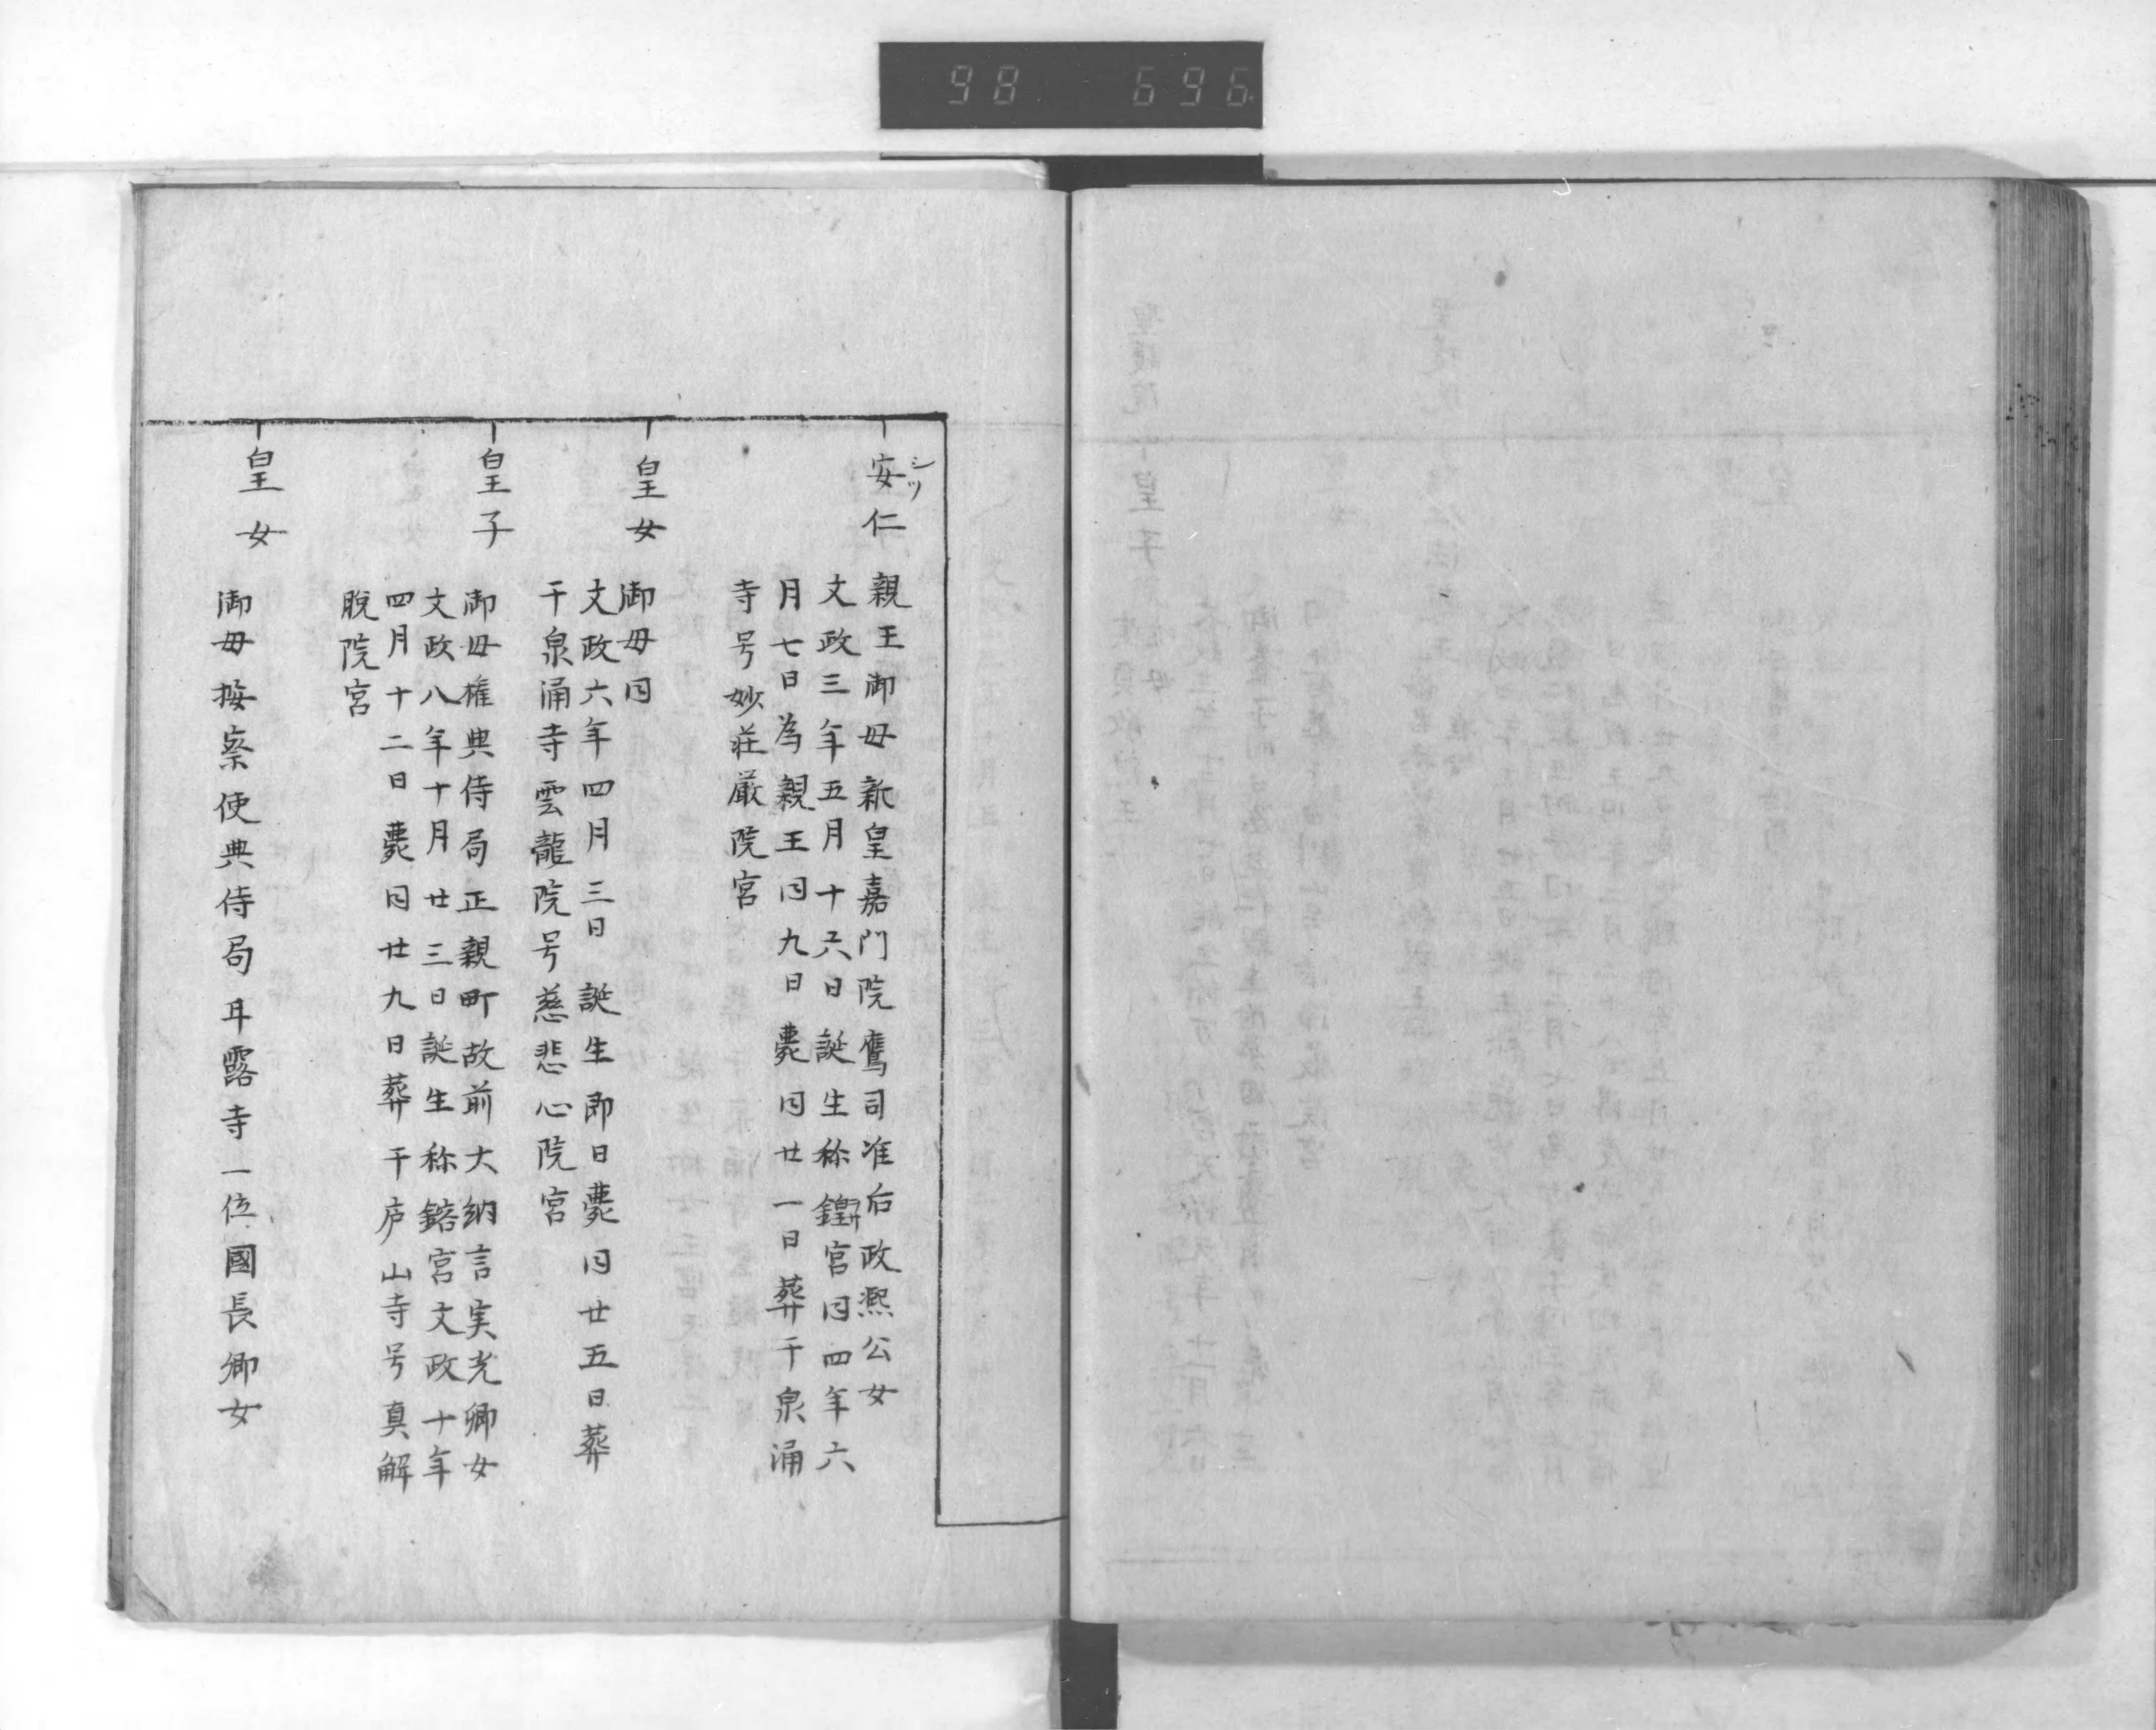 98 696
安仁
シツ
親王御母新皇嘉門院鷹司准后政熙公女
文政三年五月十六日誕生称鍠宮同四年六
月七日為親王同九日薨同廿一日葬于泉涌
寺号妙荘厳院宮
皇女
御母同
文政六年四月三日誕生即日薨同廿五日葬
于泉涌寺雲龍院号慈悲心院宮
皇子
御母権典侍局正親町故前大納言実光卿女
文政八年十月廿三日誕生称鎔宮文政十年
四月十二日薨同廿九日葬于庐山寺号真解
脱院宮
皇女
御母按察使典侍局耳露寺一位國長卿女